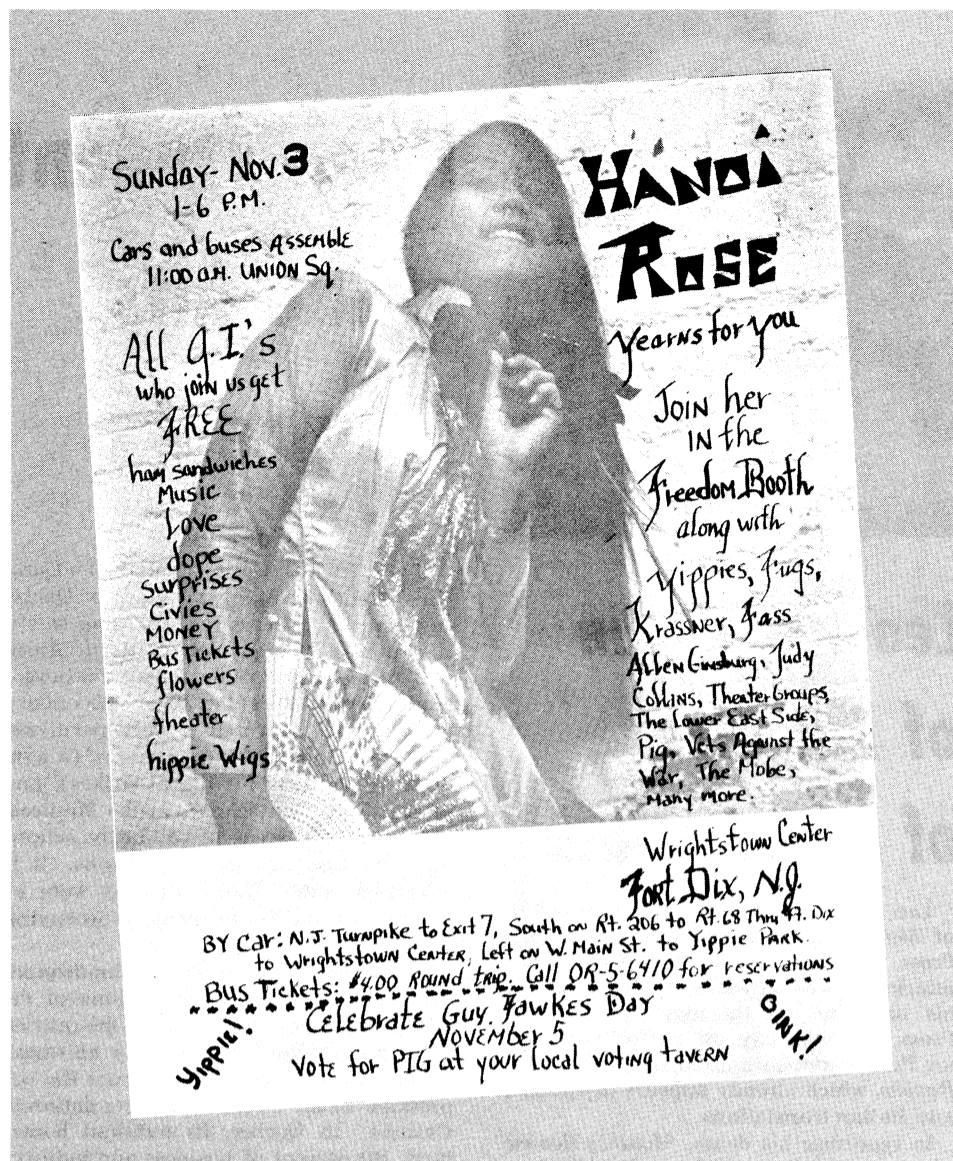 Sunday- Nov. 3
1-6 P.M.
Cars and buses ASSEMblE
11:00 a.m. UNION Sq.
All G.I.'s
who join us get
FREE
ham sandwiches
Music
Love
dope
SurprisEs
Civies
MONEY
Bus Tickets
flowers
theater
hippie Wigs
HANOi
ROSE
yearNs for you
JOIN her
IN the
Freedom Booth
along with
Yippies, Fugs,
Krassner, Fass
Allen Ginsburg, Judy
Collins, Theater Groups,
The Lower East Side,
Pig, Vets Against the
War, The Mobe,
Many more.
Wrightstown Center
Fort Dix, N.J.
BY Car: N.J. Turnpike to Exit 7, South on Rt. 206 to Rt. 68 Thru Ft. Dix
to Wrightstown Center, Left on W. Main St. to Yippie Park.
Bus Tickets: $4.00 Round trip. Call OR-5-6410 for reservations
CElEbratE Guy Fawkes Day
NovEmber 5
Vote for PIG at your local voting tavern
YIPPIE!
OINK!